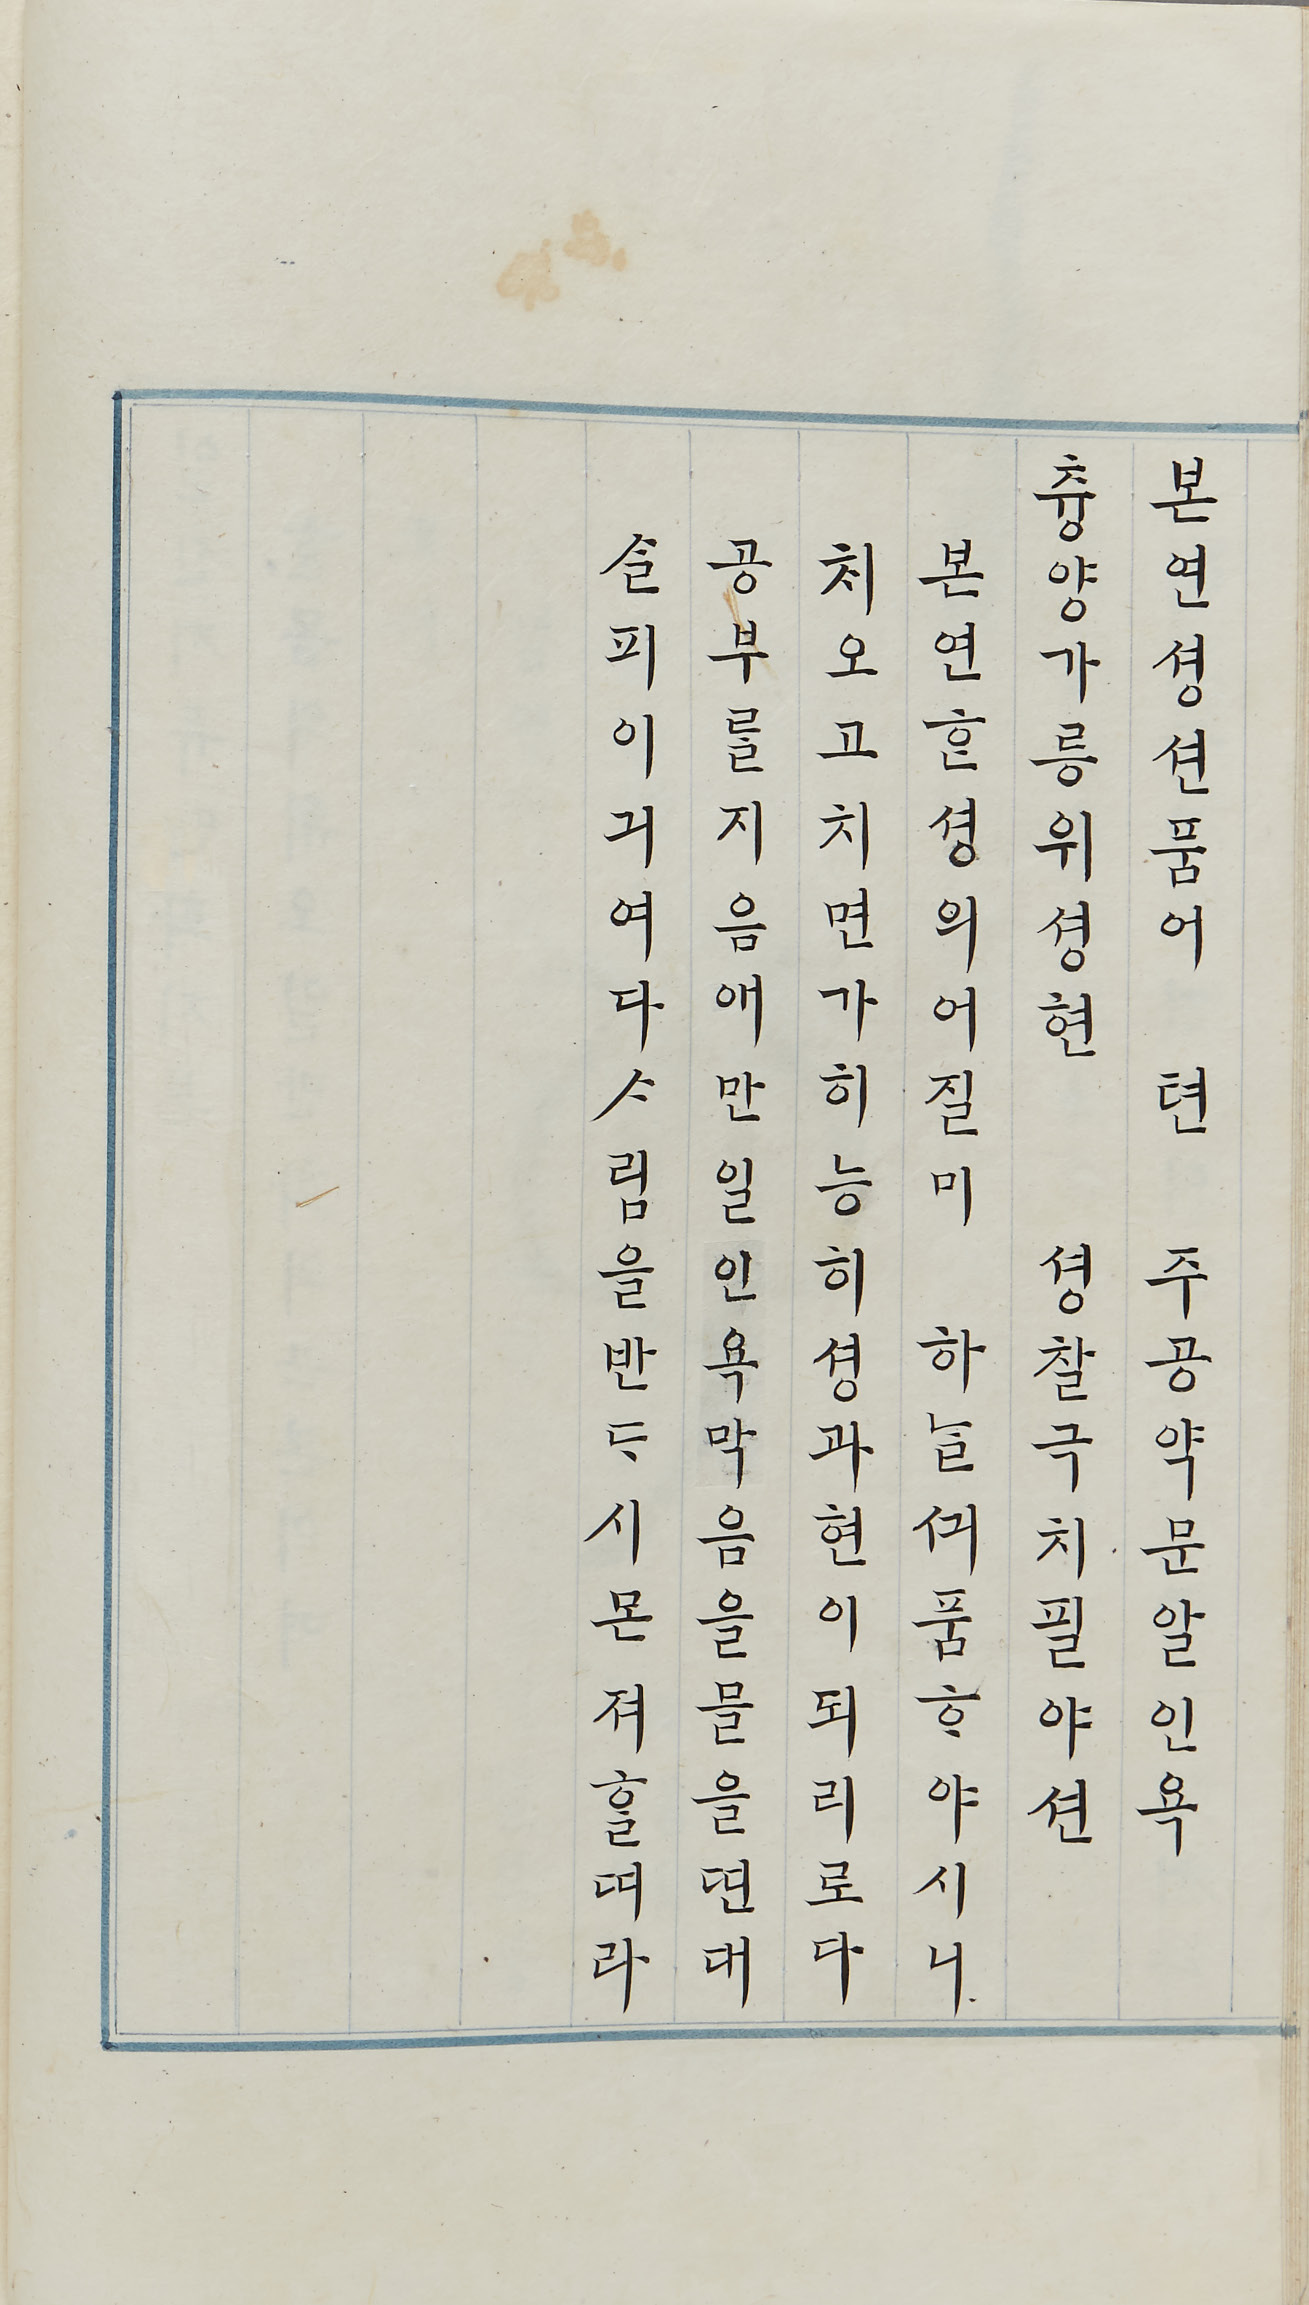 본연셩션품어 텬 주공약문알인욕
츙양가릉위셩현 셩찰극치필야션
본연ᄒᆞᆫ셩의어질미 하ᄂᆞᆯᄭᅴ품ᄒᆞ야시니
쳐오고치면가히능히셩과현이되리로다
공부ᄅᆞᆯ지음애만일인욕막음을믈을면대
ᄉᆞᆯ피이긔여다ᄉᆞ림을반ᄃᆞ시몬져ᄒᆞᆯ띠라